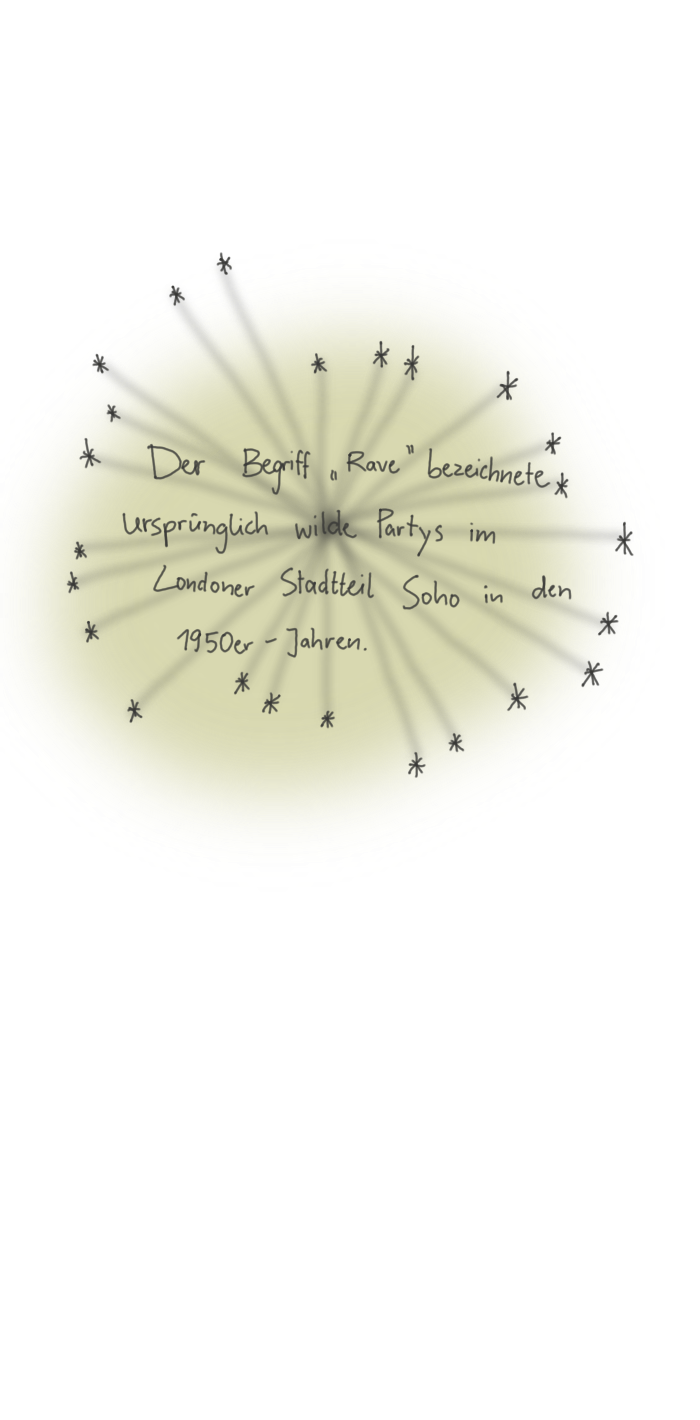 Der Begriff „Rave" bezeichnete
ursprünglich wilde Partys im
Londoner Stadtteil Soho in den
1950er-Jahren.